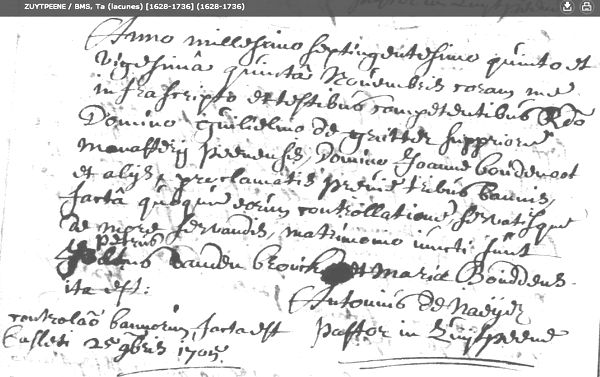 ZUYTPEENE / BMS, Ta (lacunes) [1628-1736] (1628-1736)
Anno millesimo septingentesimo quinto et
vigesimâ quintâ Novembris coram me
infrascripto et testibus competentibus Rdo
Domino Guilielmo de gritter suppriore
monasterij peenensis, Domino Joanne boudenoot
et alijs, proclamatis prævie tribus bannis,
factâ quoque eorum controllatione servatisque
de more servandis, matrimonio iuncti sunt
petrus
vanden brouck et Maria Bouddens.
ita est:
Antonius de Naeyer
pastor in Zuytpeene
controlaõ bannorum facta est
Casleti 25 9bris 1705.